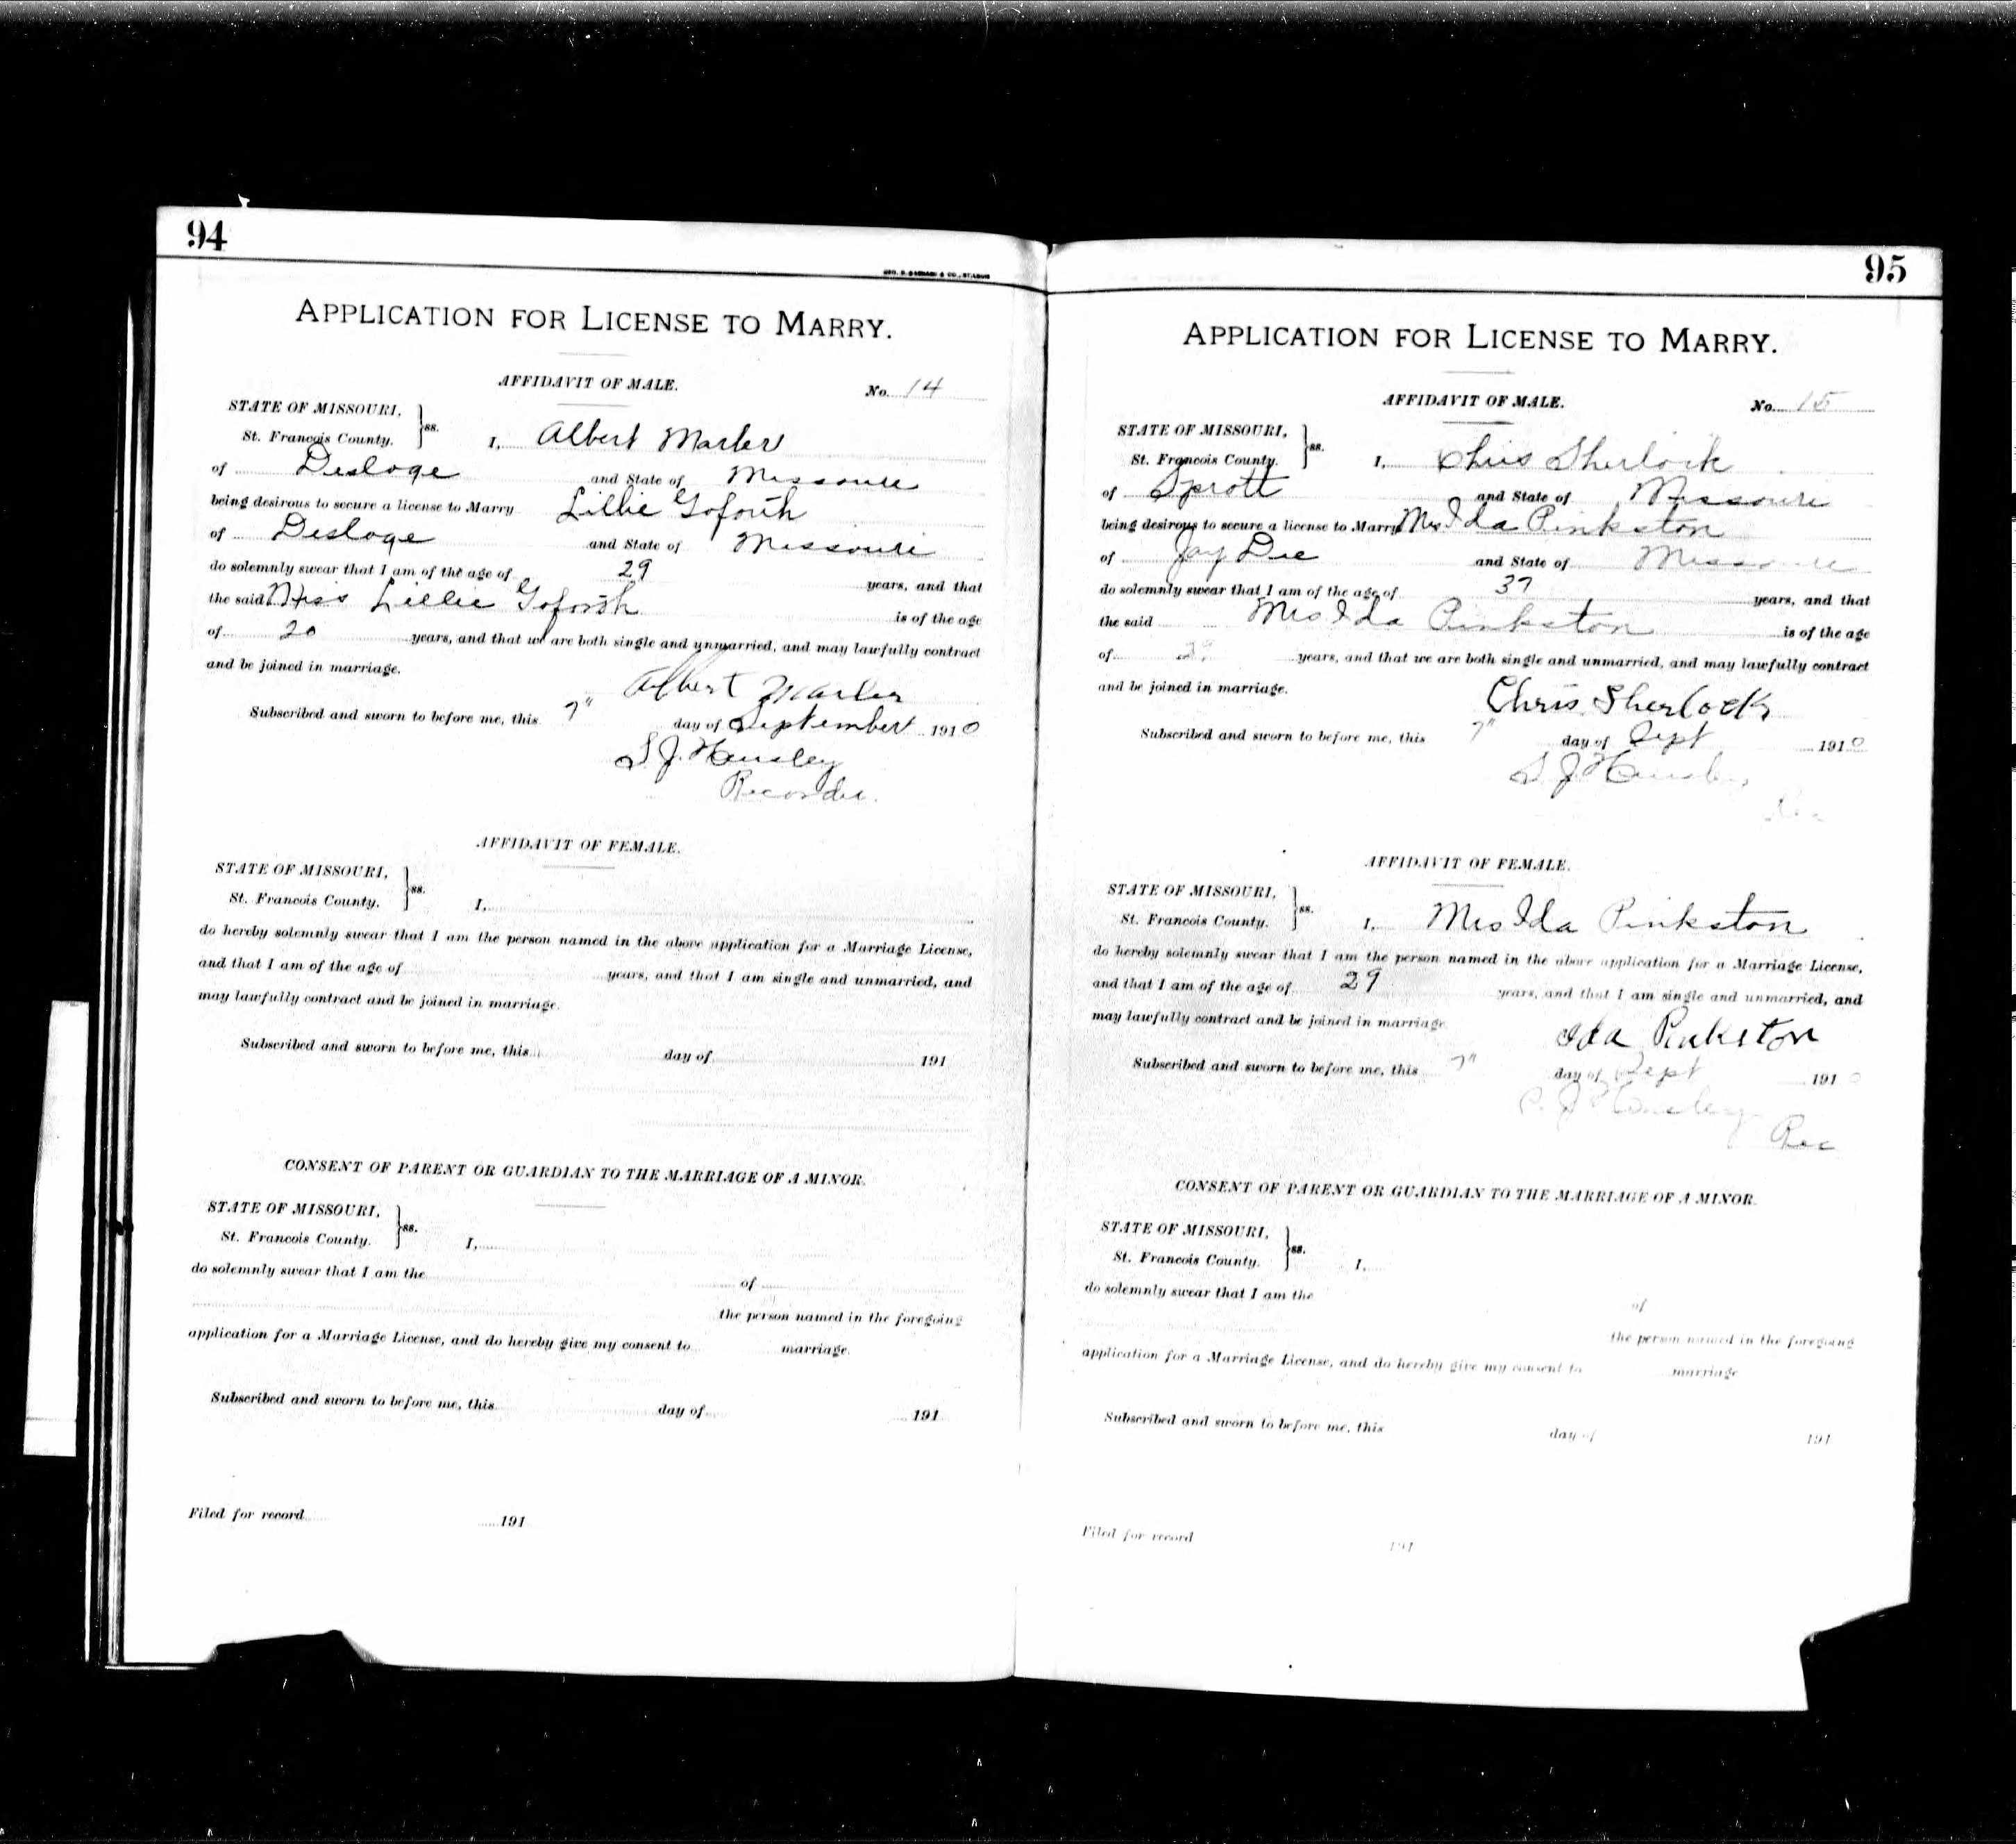 94
GEO. D. BARNARD & CO., ST. LOUIS
APPLICATION FOR LICENSE TO MARRY.
AFFIDAVIT OF MALE.
No. 14
STATE OF MISSOURI,
St. Francois County. } ss. I, Albert Marler
of Desloge and State of Missouri
being desirous to secure a license to Marry Lillie Goforth
of Desloge and State of Missouri
do solemnly swear that I am of the age of 29 years, and that
the said Miss Lillie Goforth is of the age
of 20 years, and that we are both single and unmarried, and may lawfully contract
and be joined in marriage.
Albert Marler
Subscribed and sworn to before me, this 7" day of September 1910
S. J. Hensley
Recorder.
AFFIDAVIT OF FEMALE.
STATE OF MISSOURI,
St. Francois County. } ss. I,
do hereby solemnly swear that I am the person named in the above application for a Marriage License,
and that I am of the age of years, and that I am single and unmarried, and
may lawfully contract and be joined in marriage.
Subscribed and sworn to before me, this day of 191
CONSENT OF PARENT OR GUARDIAN TO THE MARRIAGE OF A MINOR.
STATE OF MISSOURI,
St. Francois County. } ss. I,
do solemnly swear that I am the of
the person named in the foregoing
application for a Marriage License, and do hereby give my consent to marriage.
Subscribed and sworn to before me, this day of 191
Filed for record 191
95
APPLICATION FOR LICENSE TO MARRY.
AFFIDAVIT OF MALE.
No. 15
STATE OF MISSOURI,
St. Francois County. } ss. I, Chris Sherlock
of Sprott and State of Missouri
being desirous to secure a license to Marry Mrs Ida Pinkston
of Jay Dee and State of Missouri
do solemnly swear that I am of the age of 37 years, and that
the said Mrs Ida Pinkston is of the age
of years, and that we are both single and unmarried, and may lawfully contract
and be joined in marriage.
Chris. Sherlock
Subscribed and sworn to before me, this 7" day of Sept 1910
S. J. Hensley
Rec
AFFIDAVIT OF FEMALE.
STATE OF MISSOURI,
St. Francois County. } ss. I, Mrs Ida Pinkston
do hereby solemnly swear that I am the person named in the above application for a Marriage License,
and that I am of the age of 29 years, and that I am single and unmarried, and
may lawfully contract and be joined in marriage
Ida Pinkston
Subscribed and sworn to before me, this 7" day of Sept 1910
S. J. Hensley
Rec
CONSENT OF PARENT OR GUARDIAN TO THE MARRIAGE OF A MINOR.
STATE OF MISSOURI,
St. Francois County. } ss. I,
do solemnly swear that I am the of
the person named in the foregoing
application for a Marriage License, and do hereby give my consent to marriage
Subscribed and sworn to before me, this day of 191
Filed for record 191